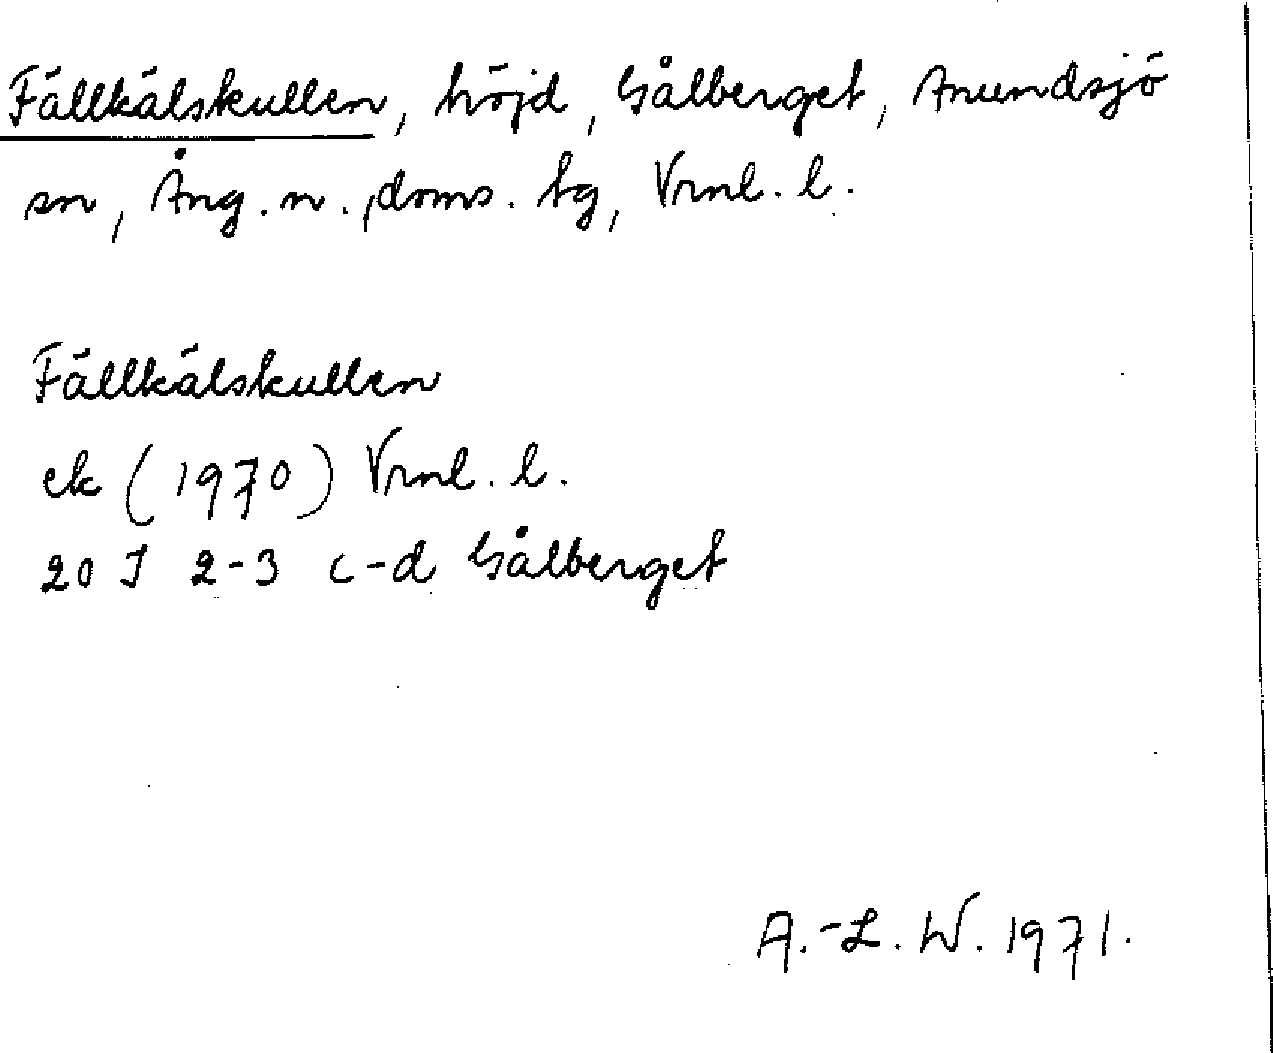 Fällkälskullen, höjd, Gålberget, Anundsjö
sn, Ång. n., doms. tg, Vrnl. l.
Fällkälskullen
ek (1970) Vrnl. l.
20 J 2-3 c-d Gålberget
A.-L. W. 1971.